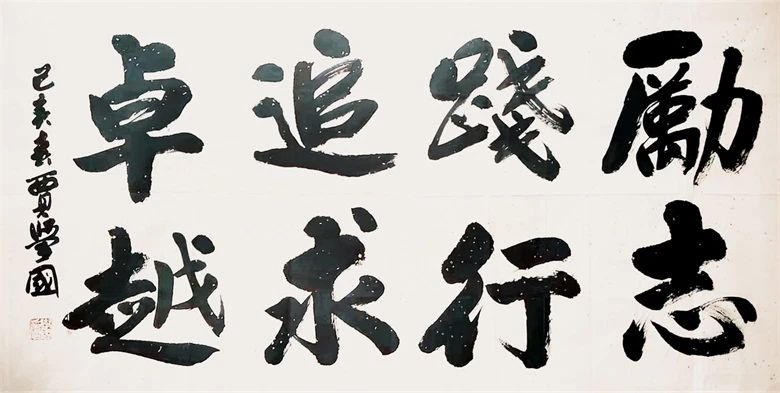 勵志
踐行
追求
卓越
己亥春賈學國